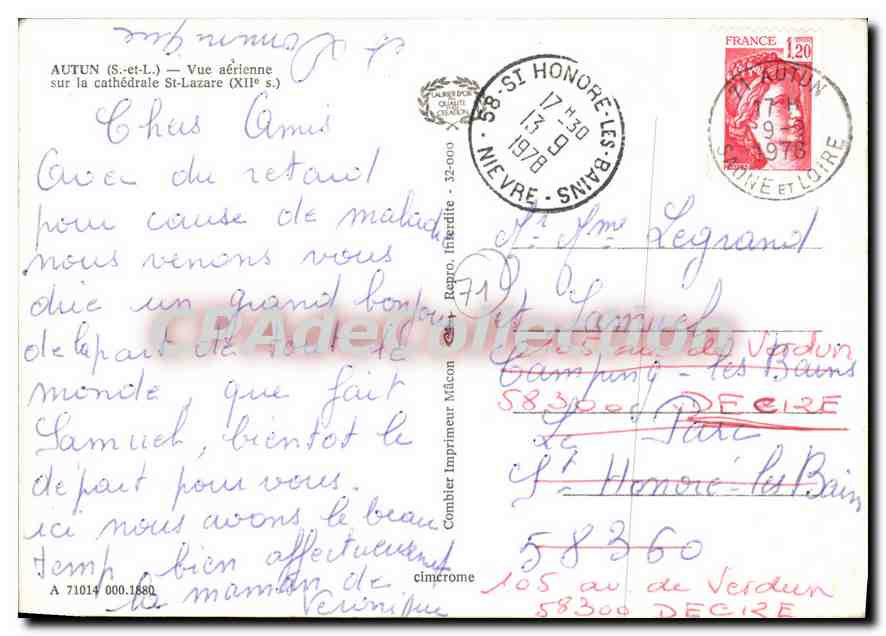 et Dominique
AUTUN (S.-et-L.) — Vue aérienne
sur la cathédrale St-Lazare (XIIe s.)
Chers Amis
Avec du retard
pour cause de maladie
nous venons vous
dire un grand bonjour
de la part de tout le
monde, que fait
Samuel, bientot le
départ pour vous.
ici nous avons le beau
temp bien affectueusement
la maman de
Veronique
A 71014 000.1880
cimcrome
LAURIER D'OR
DE LA
QUALITÉ
CREATION
Combier Imprimeur Mâcon
Repro. Interdite - 32-000
58-ST HONORE-LES-BAINS
17 H 30
13 9
1978
NIEVRE
FRANCE 1,20
71 AUTUN
17 H
9-9
1978
SAONE ET LOIRE
71
Mr Mme Legrand
et Samuel
105 av. de Verdun
Camping-les Bains
58300 DECIZE
Le Parc
St Honoré-les Bain
58360
105 av. de Verdun
58300 DECIZE
CPAdeCollection